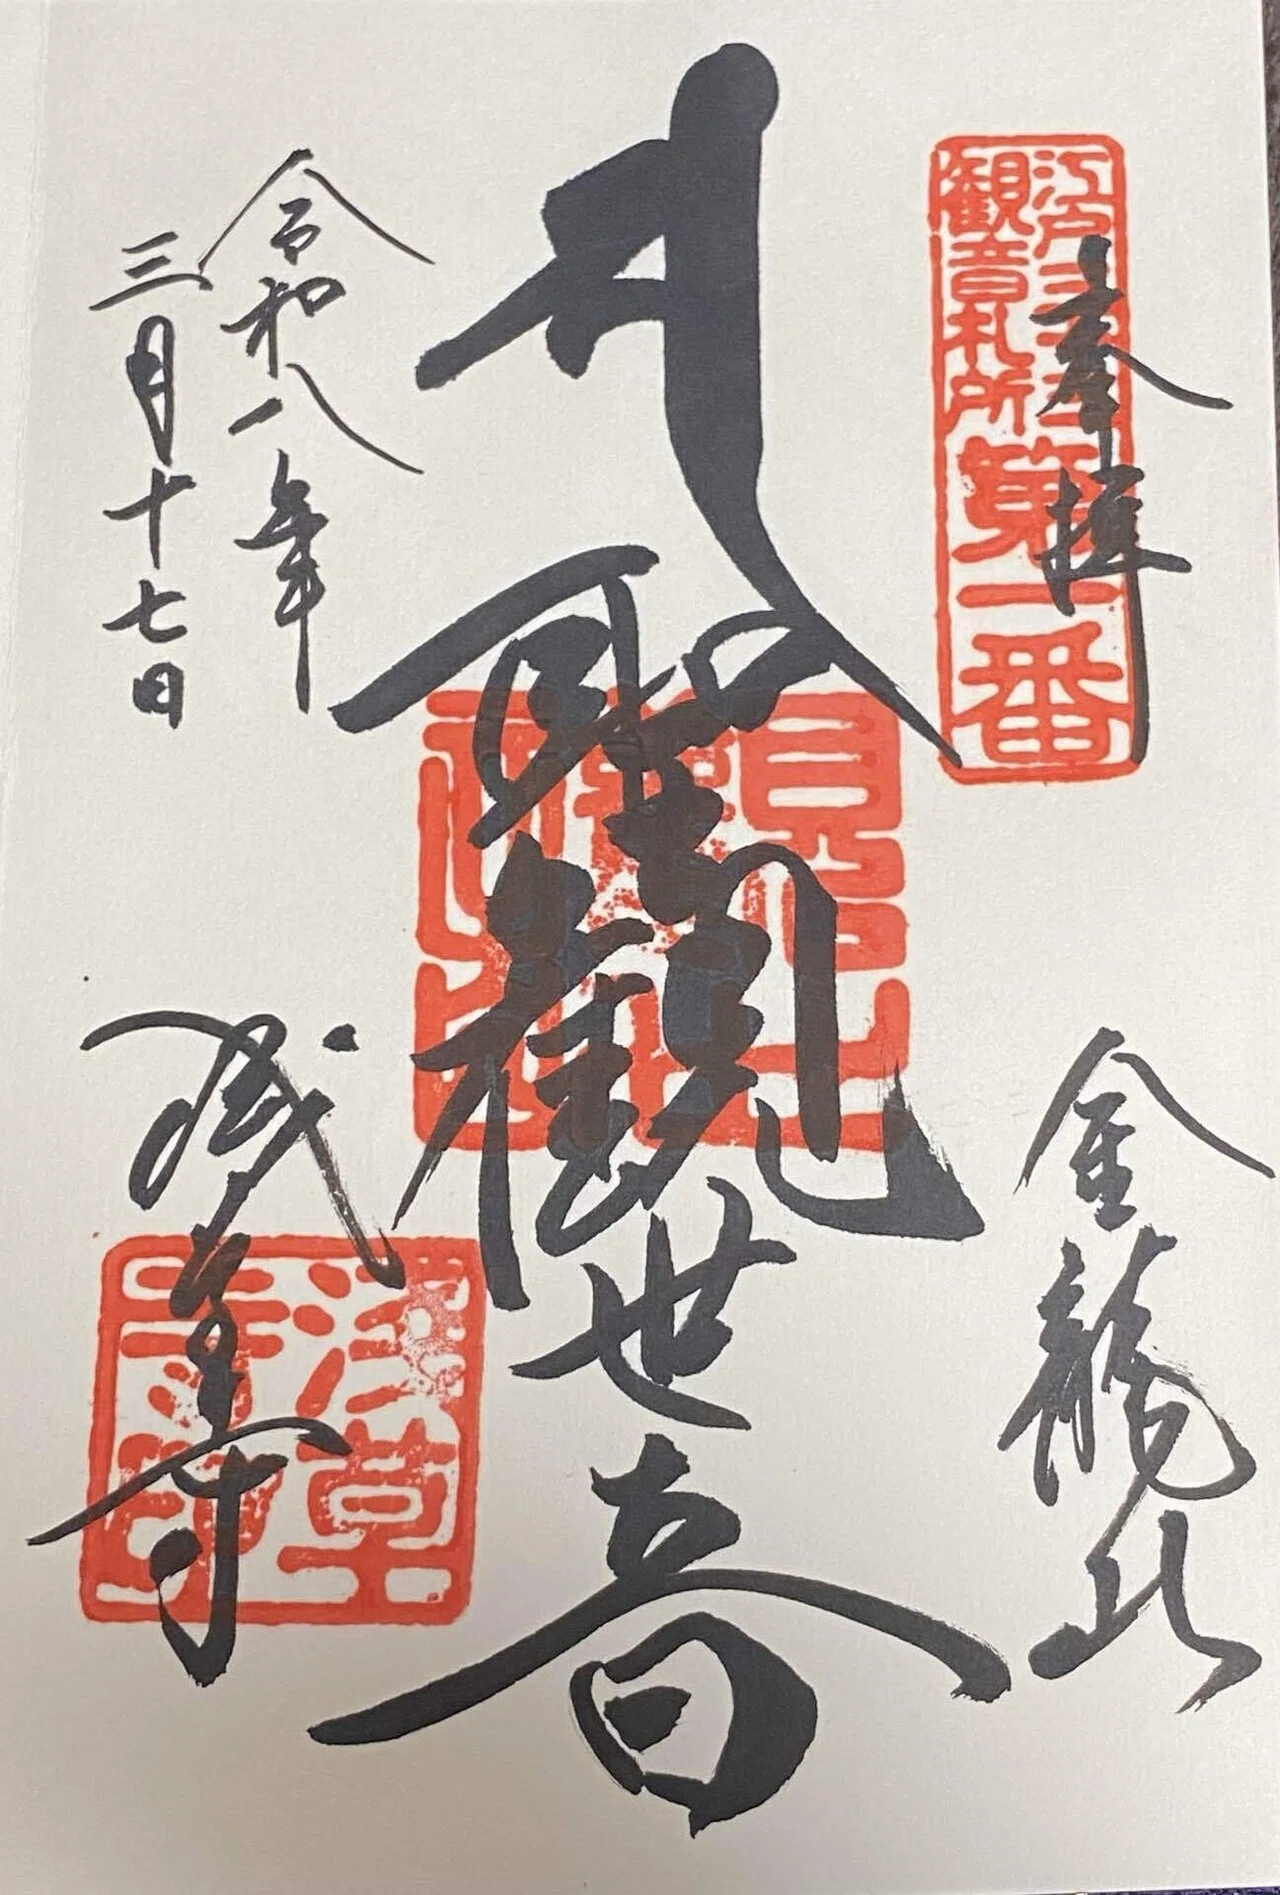 奉拝
江戸三十三
観音札所
第一番
金龍山
聖観世音
令和八年
三月十七日
浅草寺
浅草
寺印